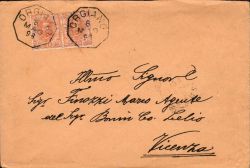 ORGIANO
ORGIANO
6
Illmo Signore
Sigr Finozzi Marco Agente
del Sigr Bonin Co. Lelio
Vicenza